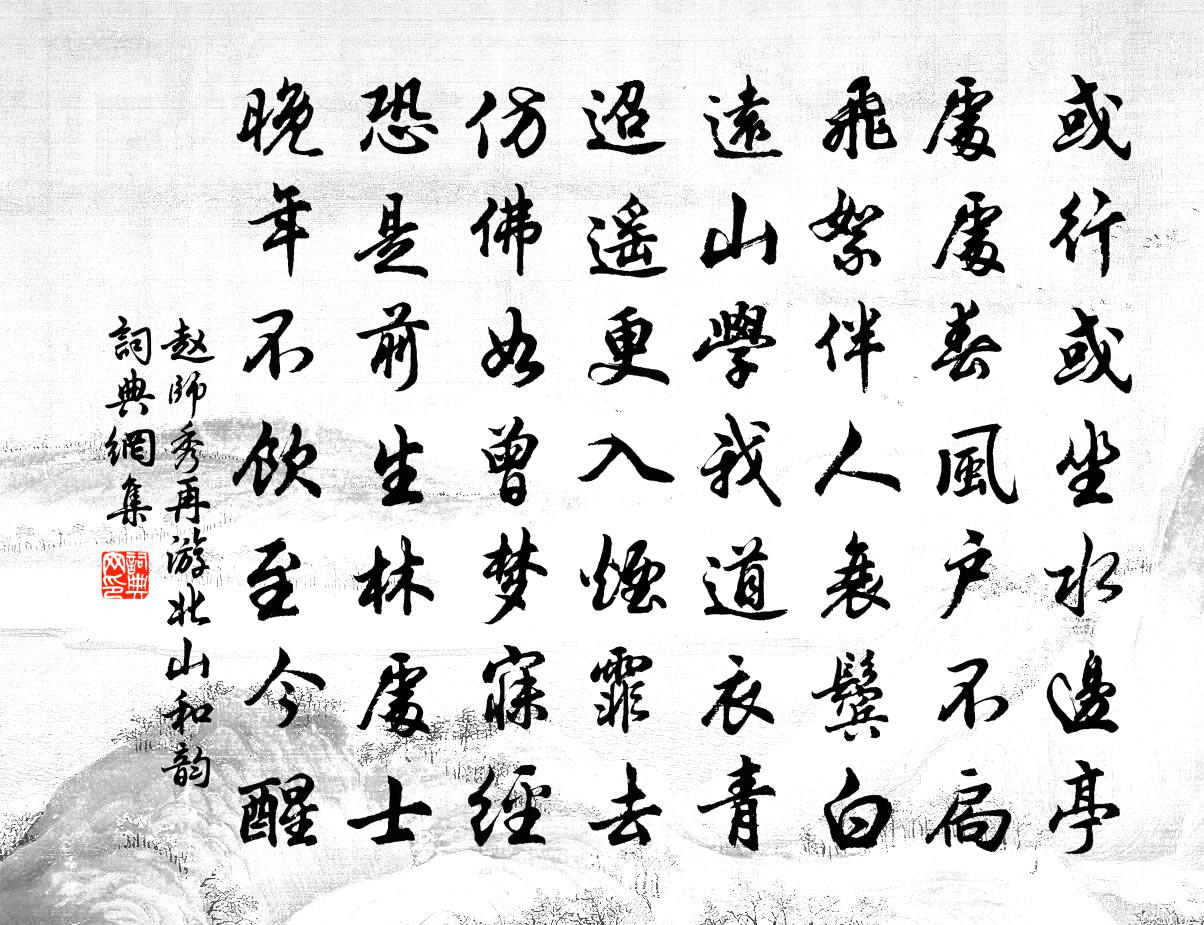 或行或坐水邊亭
處處春風户不扃
飛絮伴人衰鬓白
遠山學我道衣青
迢遥更入煙霏去
仿佛如曾梦寐經
恐是前生林處士
晚年不飲至今醒
赵師秀再游北山和韵
詞典網集
詞典网印